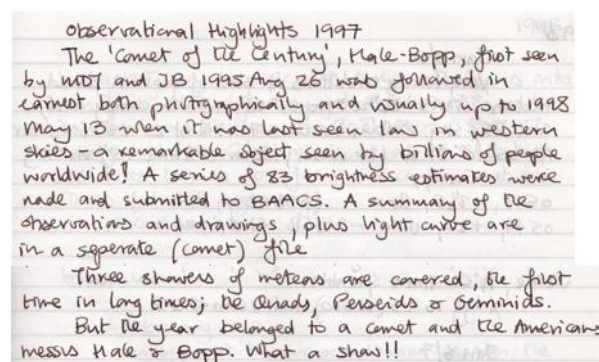 Observational Highlights 1997
The 'Comet of the Century', Hale-Bopp first seen
by MDT and JB 1995 Aug 26 was followed in
earnest both photographically and visually up to 1998
May 13 when it was last seen low in western
skies - a remarkable object seen by billions of people
worldwide! A series of 83 brightness estimates were
made and submitted to BAACS. A summary of the
observations and drawings, plus light curve are
in a seperate (comet) file
Three showers of meteors are covered, the first
time in long times; the Quads, Perseids & Geminids.
But the year belonged to a comet and the Americans
messrs Hale & Bopp. What a show!!